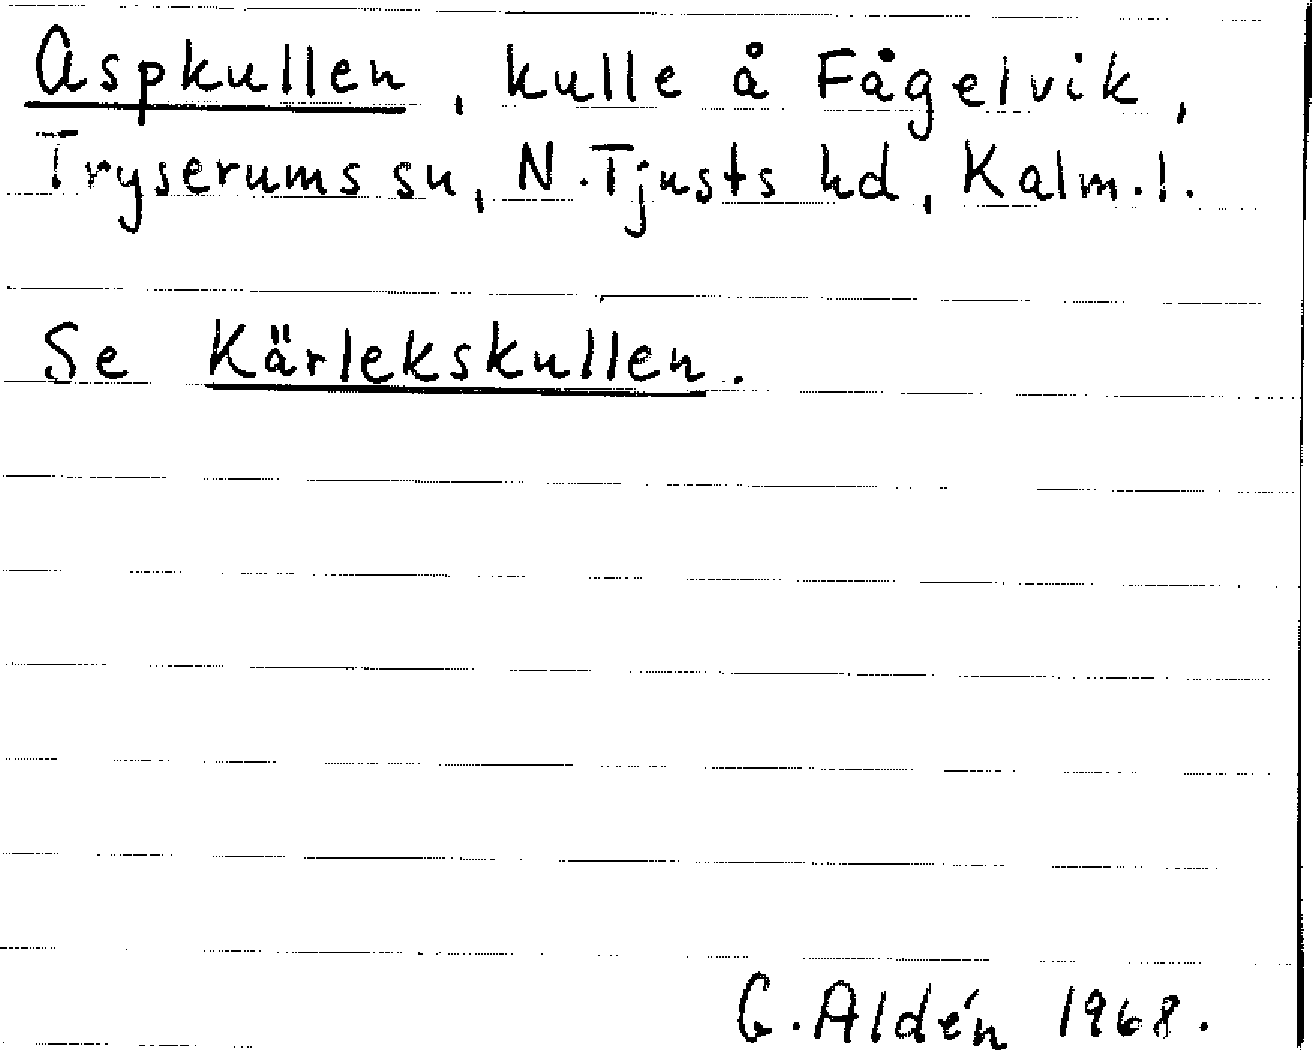 Aspkullen, kulle å Fågelvik,
Tryserums sn, N. Tjusts hd, Kalm. l.
Se Kärlekskullen.
G. Aldén 1968.